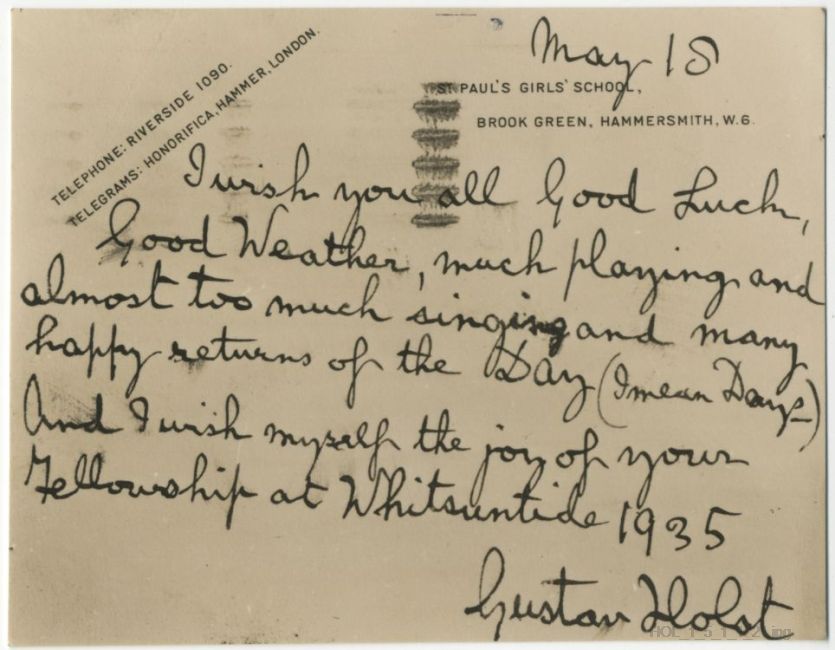 May 18
ST PAUL'S GIRLS' SCHOOL,
BROOK GREEN, HAMMERSMITH, W.6.
TELEPHONE: RIVERSIDE 1090.
TELEGRAMS: HONORIFICA, HAMMER, LONDON.
I wish you all Good Luck,
Good Weather, much playing and
almost too much singing and many
happy returns of the Day (I mean Days)
And I wish myself the joy of your
Fellowship at Whitsuntide 1935
Gustav Holst